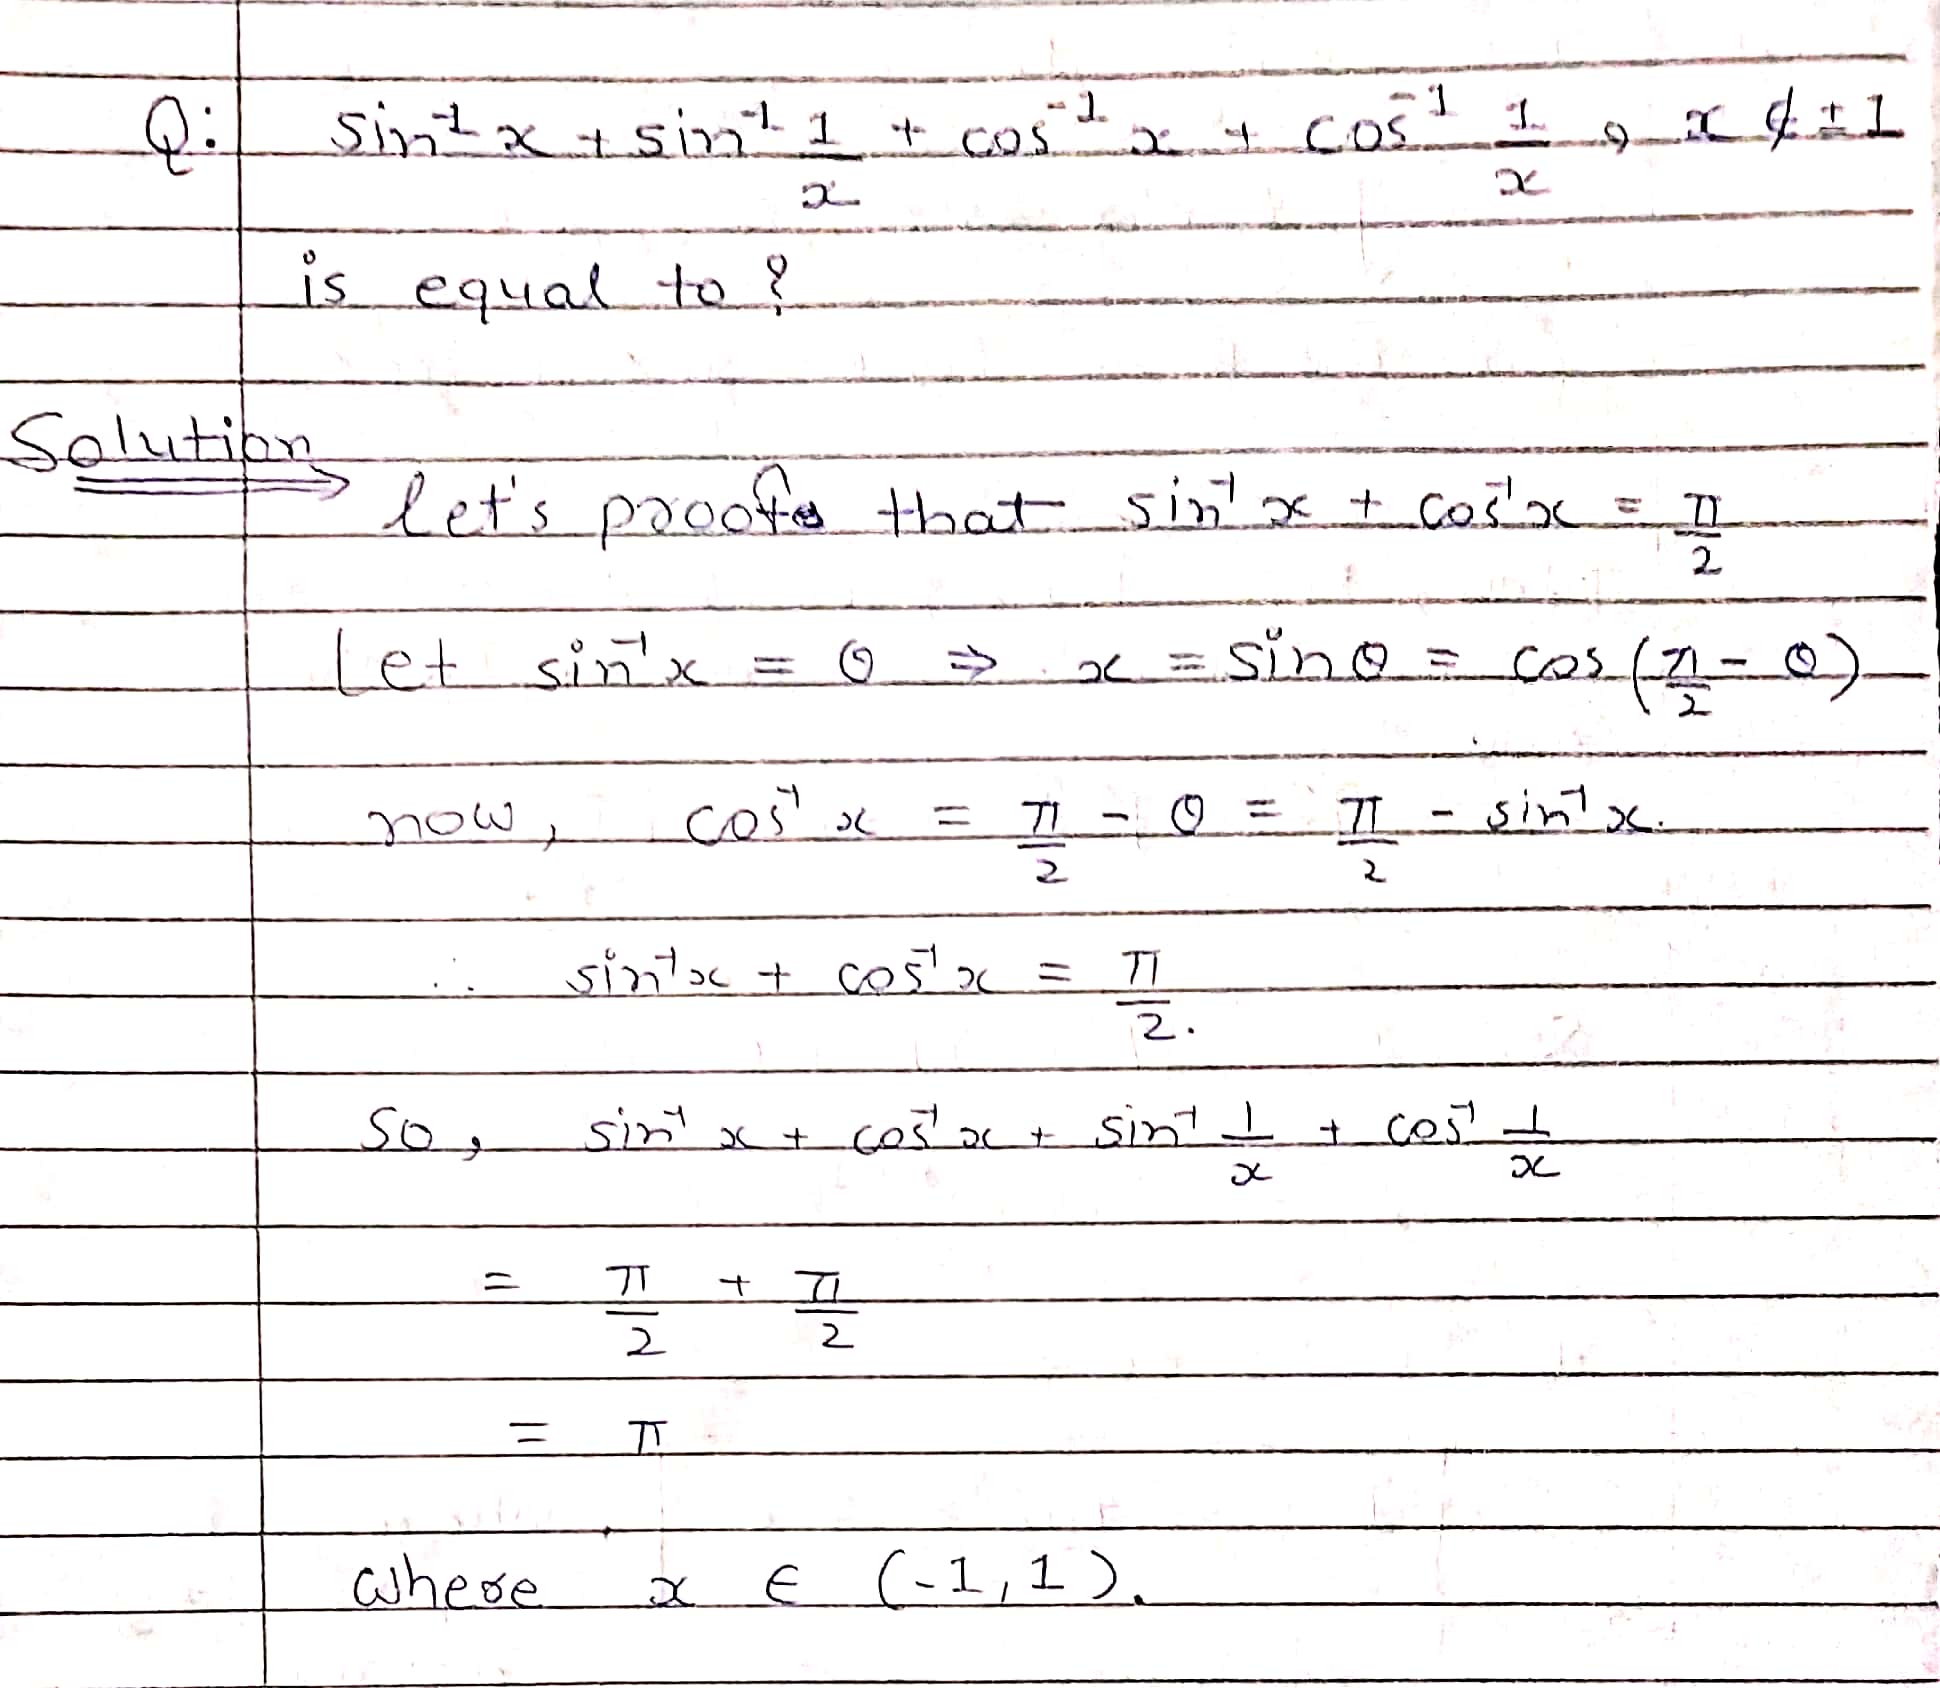 Q: sin⁻¹ x + sin⁻¹ 1/x + cos⁻¹ x + cos⁻¹ 1/x, x ∉ ±1
is equal to?
Solution
let's proofs that sin⁻¹ x + cos⁻¹ x = π/2
Let sin⁻¹ x = θ ⇒ x = sin θ = cos (π/2 - θ)
now, cos⁻¹ x = π/2 - θ = π/2 - sin⁻¹ x.
∴ sin⁻¹ x + cos⁻¹ x = π/2.
So, sin⁻¹ x + cos⁻¹ x + sin⁻¹ 1/x + cos⁻¹ 1/x
= π/2 + π/2
= π
where x ∈ (-1, 1).